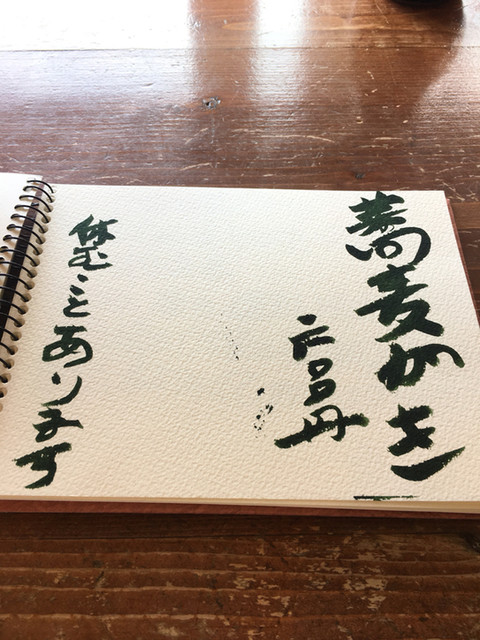 蕎麦がき
六〇〇円
休むことあります